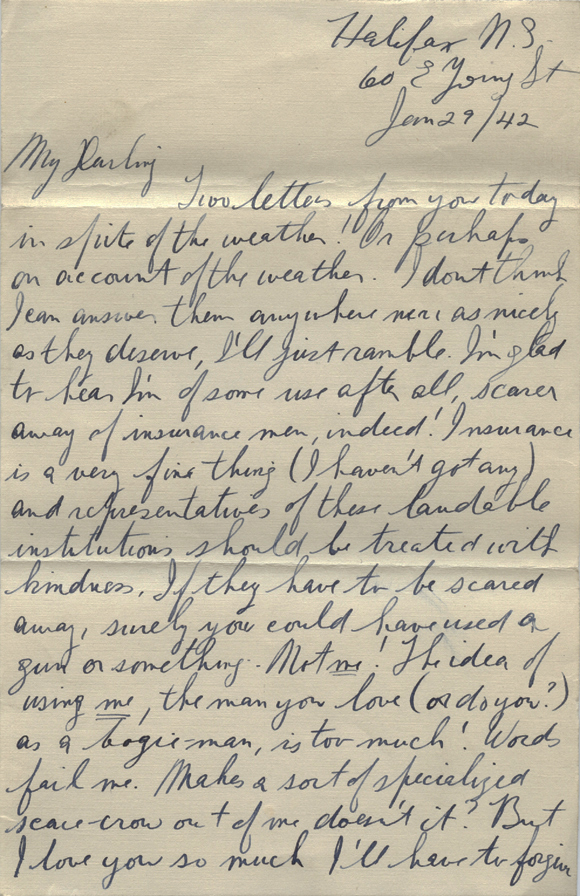 Halifax N.S.
60 E Young St
Jan 29/42
My Darling
Two letters from you today
in spite of the weather! Or perhaps
on account of the weather. I dont think
I can answer them anywhere near as nicely
as they deserve, I'll just ramble. I'm glad
to hear I'm of some use after all, scarer
away of insurance men, indeed! Insurance
is a very fine thing (I haven't got any)
and representatives of these laudable
institutions should be treated with
kindness. If they have to be scared
away, surely you could have used a
gun or something. Not me! The idea of
using me, the man you love (or do you?)
as a bogie-man, is too much! Words
fail me. Makes a sort of specialized
scare-crow out of me doesn't it? But
I love you so much I'll have to forgive